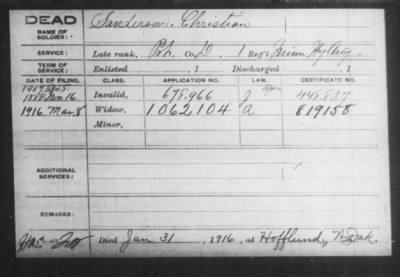 DEAD
NAME OF SOLDIER:
Sanderson, Christian
SERVICE:
Late rank, Pvt. Co. D, 1 Reg't
TERM OF SERVICE:
Enlisted , 1 Discharged , 1
DATE OF FILING. CLASS. APPLICATION NO. LAW. CERTIFICATE NO.
1888 Nov. 16 Invalid, 678,966 J 448,837
1916, Mar. 8 Widow, 1,062,104 a 819158
Minor,
ADDITIONAL SERVICES:
REMARKS:
Died Jan. 31, 1916, at Hofflund, N. Dak.